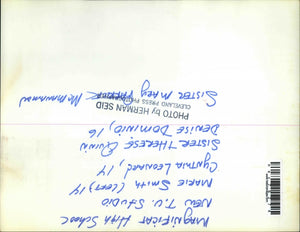 MAGNIFICAT HIGH SCHOOL
NEW T.V. STUDIO
MARIE SMITH (LEFT) 14
CYNTHIA LEONARD, 14
SISTER THERESE QUINN
DENISE DOMINIO, 16
PHOTO by HERMAN SEID
CLEVELAND PRESS
SISTER MARY